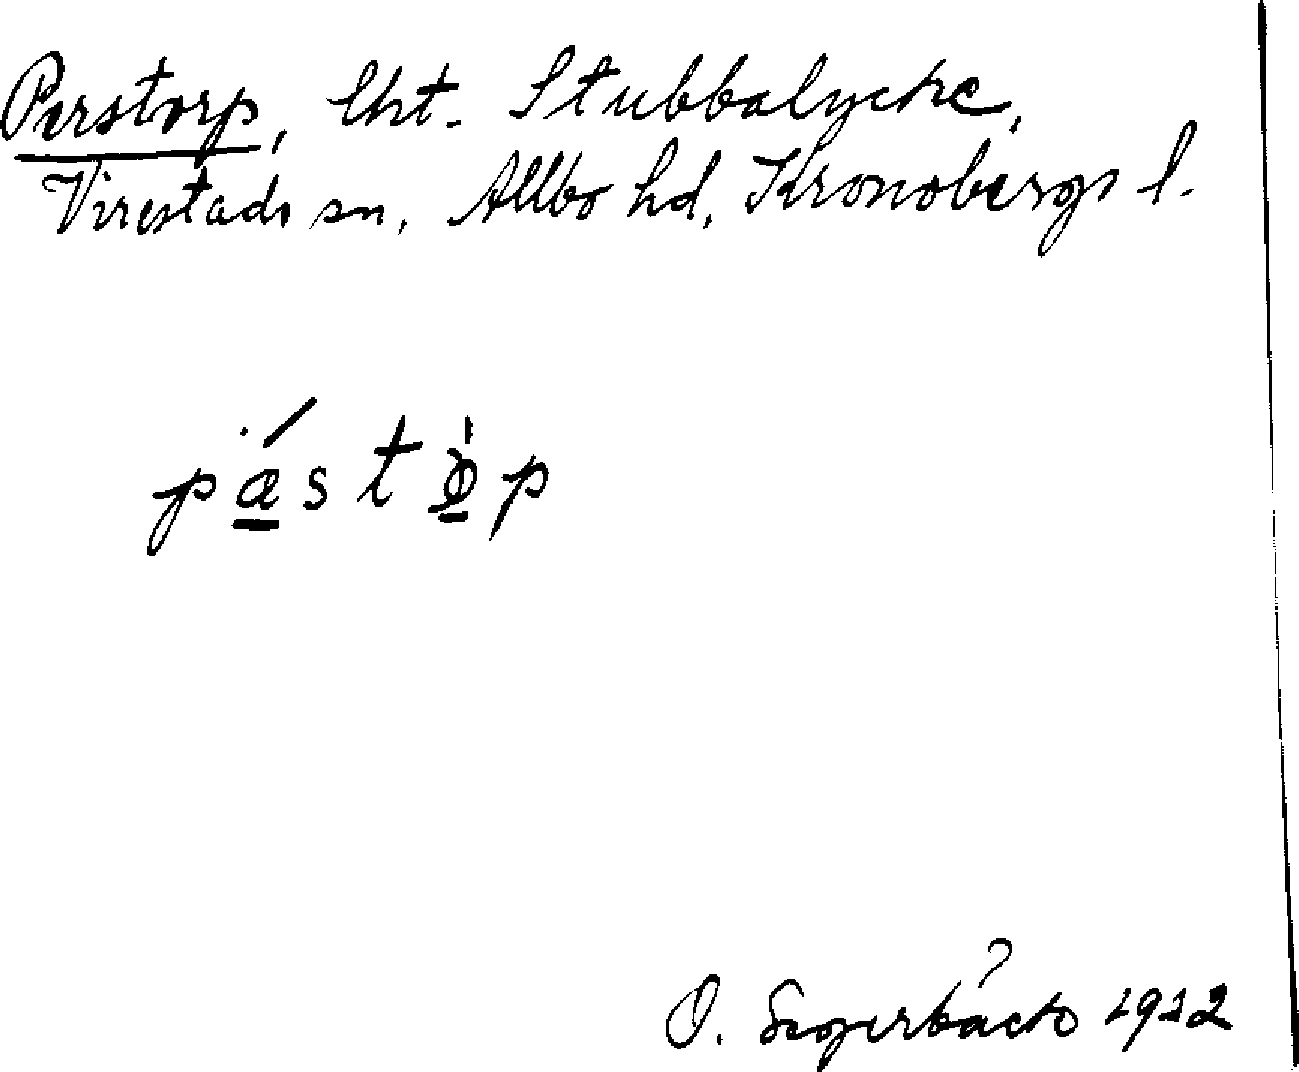 Perstorp, lht. Stubbalycke,
Virestads sn, Allbo hd, Kronobergs l.
O. Segerbäck 1912